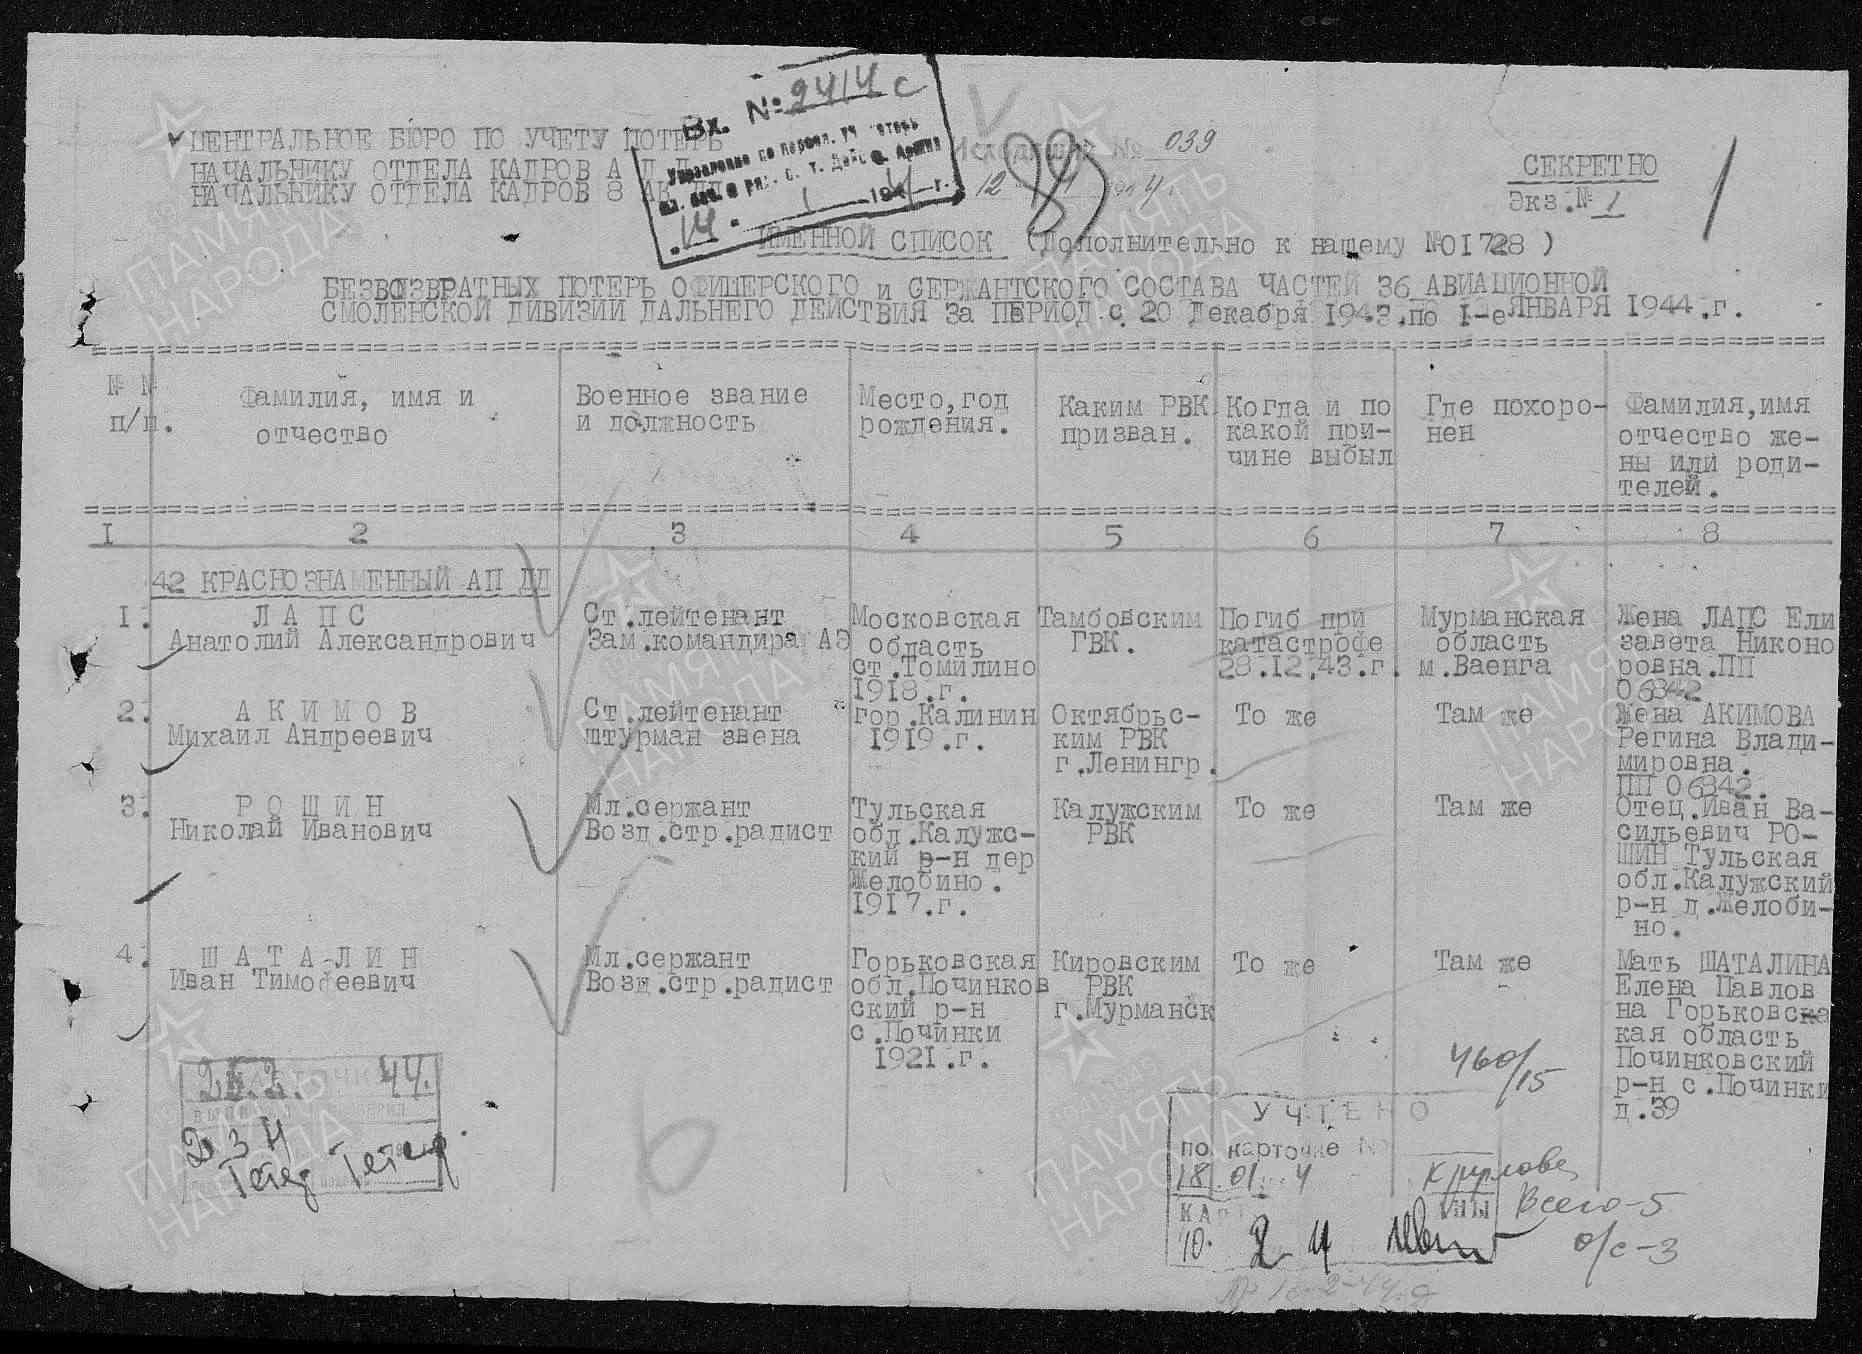 Вх. № 2414 с
Управление по персон. уч потерь
14. 1 194 г.
Исходящий № 039
12 1 4
89
ЦЕНТРАЛЬНОЕ БЮРО ПО УЧЕТУ ПОТЕРЬ
НАЧАЛЬНИКУ ОТДЕЛА КАДРОВ А Д Д
НАЧАЛЬНИКУ ОТДЕЛА КАДРОВ 8 АК ДД
СЕКРЕТНО
Экз.№ 1
1
ИМЕННОЙ СПИСОК (Дополнительно к нашему №01728 )
БЕЗВОЗВРАТНЫХ ПОТЕРЬ ОФИЦЕРСКОГО и СЕРЖАНТСКОГО СОСТАВА ЧАСТЕЙ 36 АВИАЦИОННОЙ
СМОЛЕНСКОЙ ДИВИЗИИ ДАЛЬНЕГО ДЕЙСТВИЯ За ПЕРИОД с 20 Декабря 1943.по 1-е ЯНВАРЯ 1944.г.
№ №
п/п.
Фамилия, имя и
отчество
Военное звание
и должность
Место,год
рождения.
Каким РВК
призван.
Когда и по
какой при-
чине выбыл
Где похоро-
нен
Фамилия,имя
отчество же-
ны или роди-
телей.
I 2 3 4 5 6 7 8
42 КРАСНОЗНАМЕННЫЙ АП ДД
I.
Л А П С
Анатолий Александрович
Ст.лейтенант
Зам.командира АЭ
Московская
область
ст.Томилино
1918.г.
Тамбовским
ГВК.
Погиб при
катастрофе
28.12.43.г.
Мурманская
область
м.Ваенга
Жена ЛАПС Ели
завета Никоно
ровна.ПП
06342
2.
А К И М О В
Михаил Андреевич
Ст.лейтенант
штурман звена
гор.Калинин
1919.г.
Октябрьс-
ким РВК
г.Ленингр.
То же
Там же
Жена АКИМОВА
Регина Влади-
мировна.
ПП 06342.
3.
Р О Ш И Н
Николай Иванович
Мл.сержант
Возд.стр.радист
Тульская
обл.Калужс-
кий р-н дер
Желобино.
1917.г.
Калужским
РВК
То же
Там же
Отец.Иван Ва-
сильевич РО-
ШИН Тульская
обл.Калужский
р-н д.Желоби-
но.
4.
Ш А Т А Л И Н
Иван Тимофеевич
Мл.сержант
Возд.стр.радист
Горьковская
обл.Починков
ский р-н
с.Починки
1921.г.
Кировским
РВК
г.Мурманск
То же
Там же
Мать ШАТАЛИНА
Елена Павлов
на Горьковска
кая область
Починковский
р-н с.Починки
д.39
460/15
44.
6
УЧТЕНО
по карточке №
18.01 4
Всего-5
о/с-3
ПАМЯТЬ
НАРОДА
ПАМЯТЬ
НАРОДА
ПАМЯТЬ
НАРОДА
ПАМЯТЬ
НАРОДА
ПАМЯТЬ
НАРОДА
ПАМЯТЬ
НАРОДА